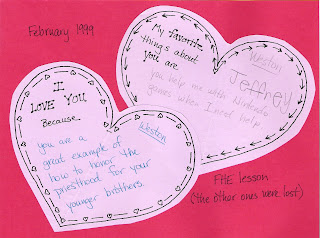 February 1999
I
LOVE YOU
Because...
Weston
you are a
great example of
how to honor the
priesthood for your
younger brothers.
My favorite
things about
you are
Weston
Jeffrey
you help me with Nintendo
games when I need help
FHE lesson
(the other ones were lost)